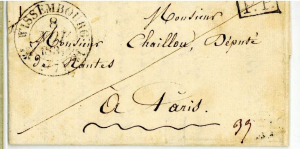 WISSEMBOURG
8
P.P.
Monsieur
Monsieur Chaillou, Député
93 Nantes
à Paris.
39